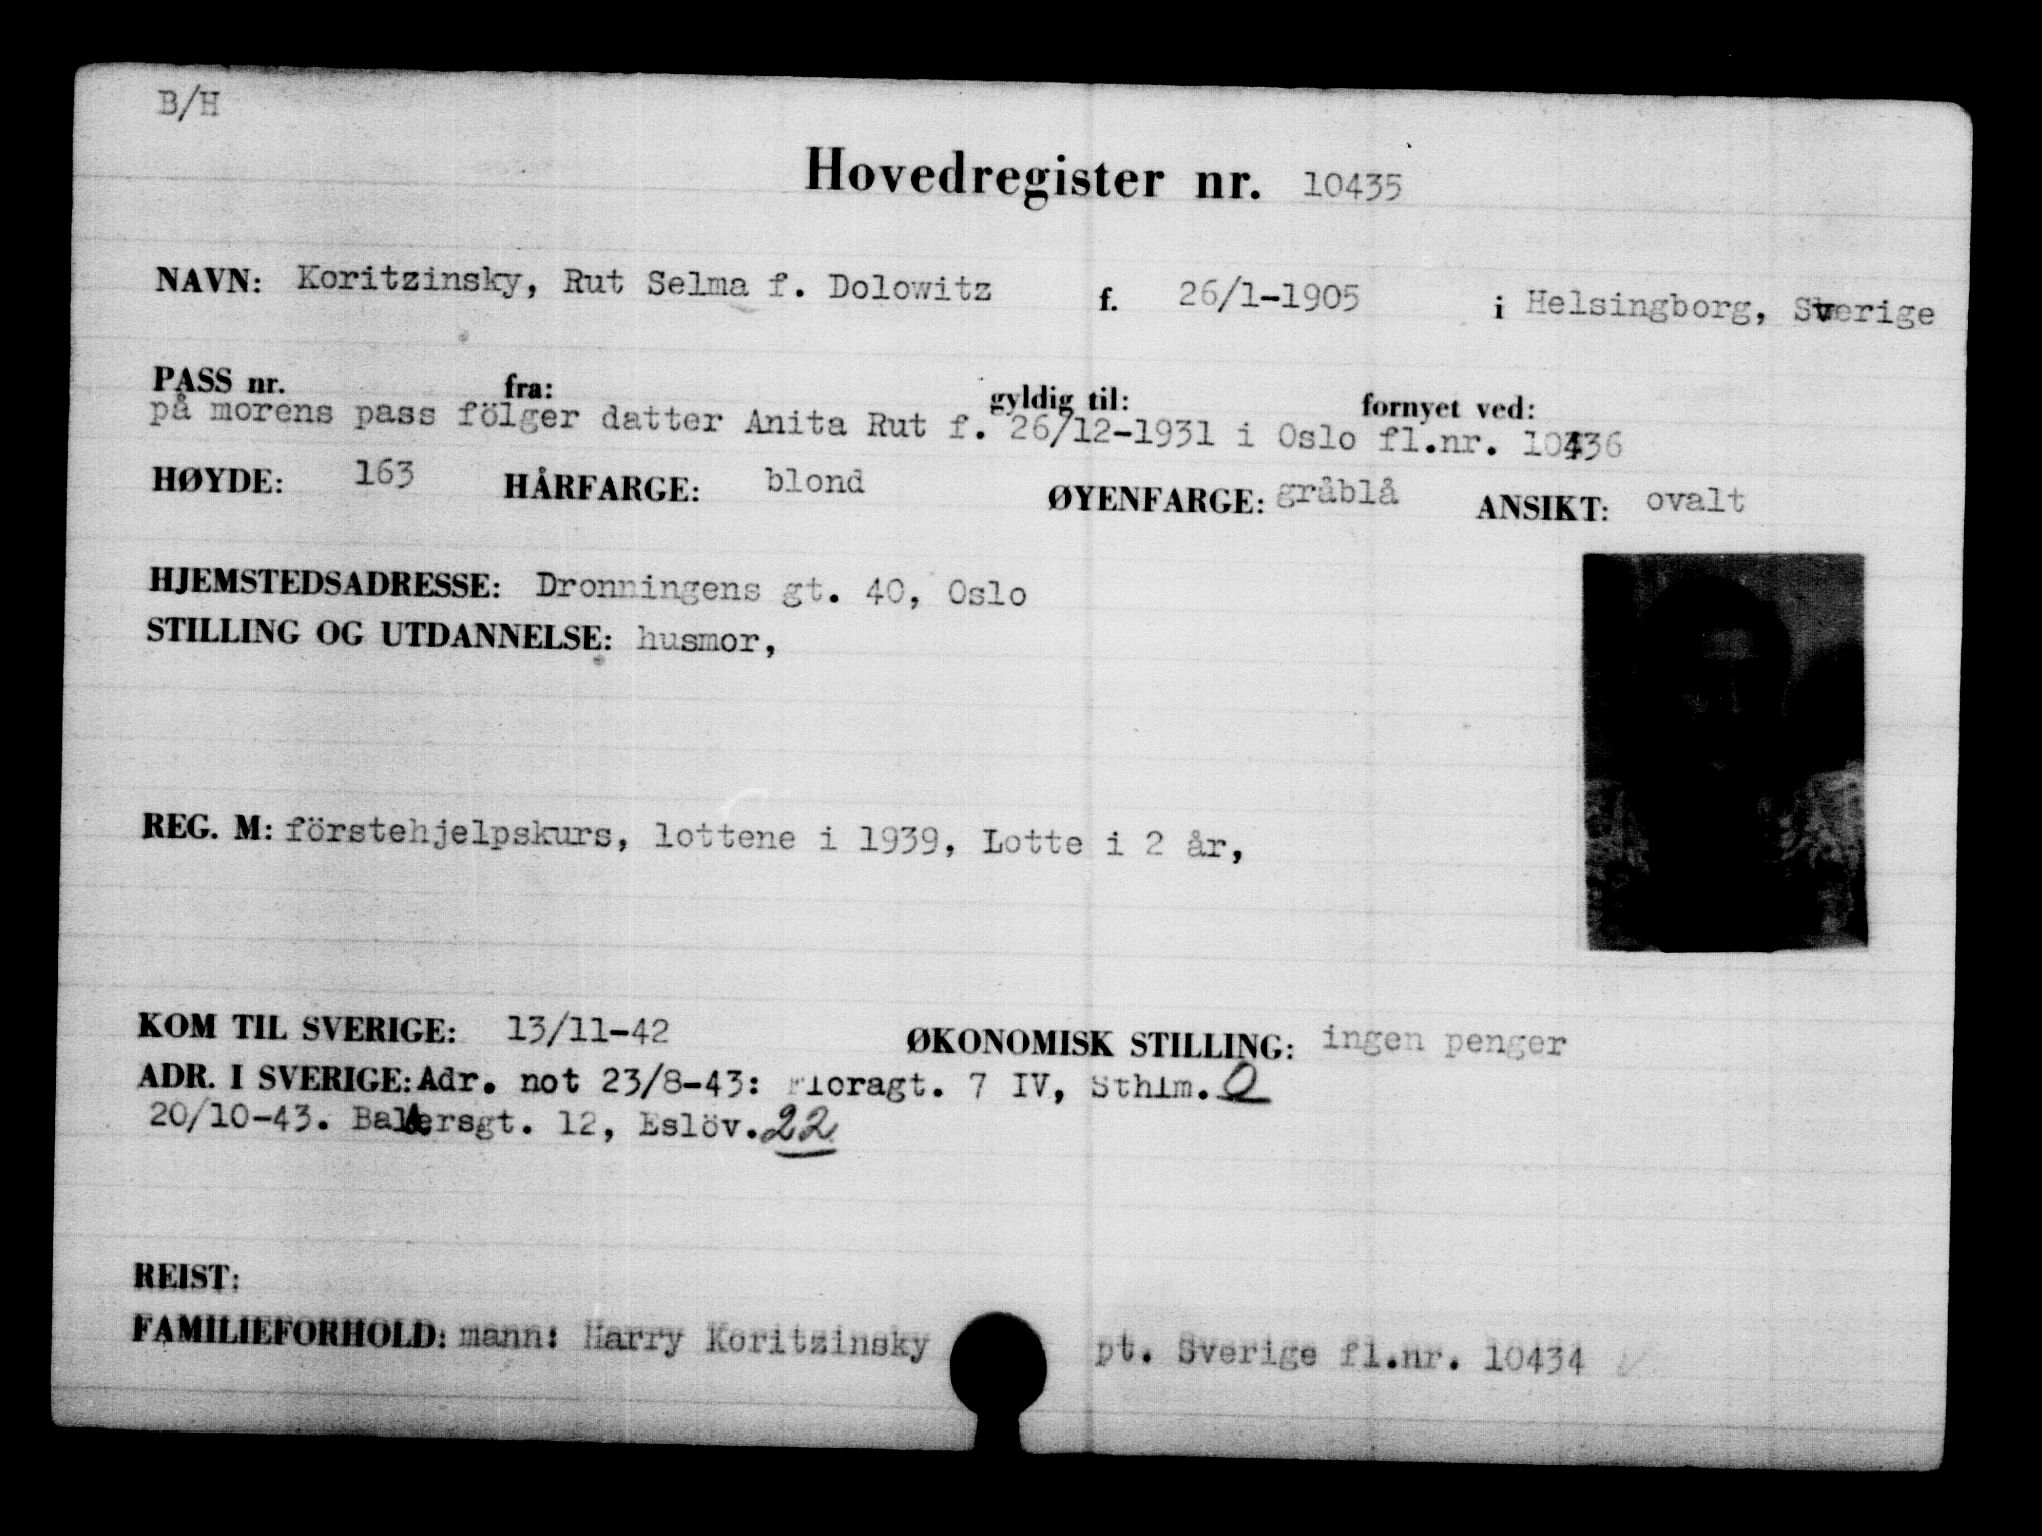 B/H
Hovedregister nr. 10435
NAVN: Koritzinsky, Rut Selma f. Dolowitz f. 26/1-1905 i Helsingborg, Sverige
PASS nr. fra: gyldig til: fornyet ved:
på morens pass fölger datter Anita Rut f. 26/12-1931 i Oslo fl.nr. 10436
HØYDE: 163 HÅRFARGE: blond ØYENFARGE: gråblå ANSIKT: ovalt
HJEMSTEDSADRESSE: Dronningens gt. 40, Oslo
STILLING OG UTDANNELSE: husmor,
REG. M: förstehjelpskurs, lottene i 1939, Lotte i 2 år,
KOM TIL SVERIGE: 13/11-42 ØKONOMISK STILLING: ingen penger
ADR. I SVERIGE: Adr. not 23/8-43: Floragt. 7 IV, Sthlm. O
20/10-43. gt. 12, Eslöv. 22
REIST:
FAMILIEFORHOLD: mann: Harry Koritzinsky pt. Sverige fl.nr. 10434